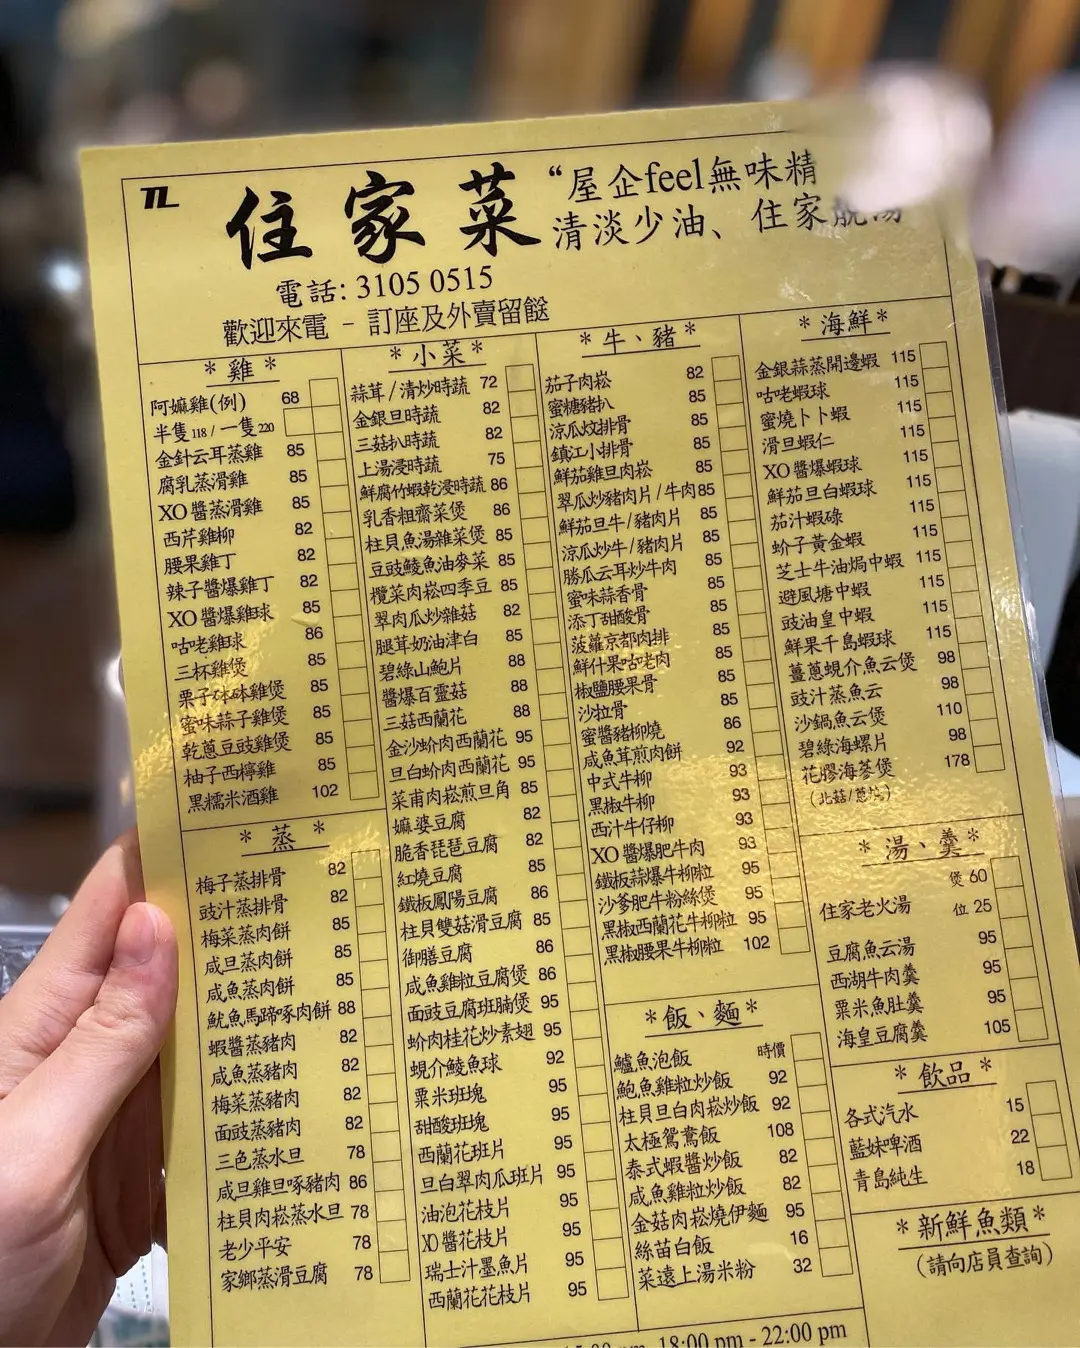 TL
住家菜
“屋企feel無味精
清淡少油、住家靚湯
電話: 3105 0515
歡迎來電 - 訂座及外賣留餸
*雞*
阿嫲雞(例) 68
半隻118/一隻220
金針云耳蒸雞 85
腐乳蒸滑雞 85
XO醬蒸滑雞 85
西芹雞柳 82
腰果雞丁 82
辣子醬爆雞丁 82
XO醬爆雞球 85
咕老雞球 86
三杯雞煲 85
栗子砵砵雞煲 85
蜜味蒜子雞煲 85
乾蔥豆豉雞煲 85
柚子西檸雞 85
黑糯米酒雞 102
*蒸*
梅子蒸排骨 82
豉汁蒸排骨 82
梅菜蒸肉餅 85
咸旦蒸肉餅 85
咸魚蒸肉餅 85
魷魚馬蹄啄肉餅 88
蝦醬蒸豬肉 82
咸魚蒸豬肉 82
梅菜蒸豬肉 82
面豉蒸豬肉 82
三色蒸水旦 78
咸旦雞旦啄豬肉 86
柱貝肉崧蒸水旦 78
老少平安 78
家鄉蒸滑豆腐 78
*小菜*
蒜茸/清炒時蔬 72
金銀旦時蔬 82
三菇扒時蔬 82
上湯浸時蔬 75
鮮腐竹蝦乾浸時蔬 86
乳香粗齋菜煲 86
柱貝魚湯雜菜煲 85
豆豉鯪魚油麥菜 85
欖菜肉崧四季豆 85
翠肉瓜炒雜菇 82
腿茸奶油津白 85
碧綠山鮑片 88
醬爆百靈菇 88
三菇西蘭花 88
金沙蚧肉西蘭花 95
旦白蚧肉西蘭花 95
菜甫肉崧煎旦角 85
嫲婆豆腐 82
脆香琵琶豆腐 82
紅燒豆腐 85
鐵板鳳陽豆腐 86
柱貝雙菇滑豆腐 85
御膳豆腐 86
咸魚雞粒豆腐煲 86
面豉豆腐班腩煲 95
蚧肉桂花炒素翅 95
蜆介鯪魚球 92
粟米班塊 95
甜酸班塊 95
西蘭花班片 95
旦白翠肉瓜班片 95
油泡花枝片 95
XO醬花枝片 95
瑞士汁墨魚片 95
西蘭花花枝片 95
*牛、豬*
茄子肉崧 82
蜜糖豬扒 85
涼瓜炆排骨 85
鎮江小排骨 85
鮮茄雞旦肉崧 85
翠瓜炒豬肉片/牛肉 85
鮮茄旦牛/豬肉片 85
涼瓜炒牛/豬肉片 85
勝瓜云耳炒牛肉 85
蜜味蒜香骨 85
添丁甜酸骨 85
菠蘿京都肉排 85
鮮什果咕老肉 85
椒鹽腰果骨 85
沙拉骨 85
蜜醬豬柳燒 86
咸魚茸煎肉餅 92
中式牛柳 93
黑椒牛柳 93
西汁牛仔柳 93
XO醬爆肥牛肉 93
鐵板蒜爆牛柳粒 95
沙爹肥牛粉絲煲 95
黑椒西蘭花牛柳粒 95
黑椒腰果牛柳粒 102
*飯、麵*
鱸魚泡飯 時價
鮑魚雞粒炒飯 92
柱貝旦白肉崧炒飯 92
太極鴛鴦飯 108
泰式蝦醬炒飯 82
咸魚雞粒炒飯 82
金菇肉崧燒伊麵 95
絲苗白飯 16
菜遠上湯米粉 32
*海鮮*
金銀蒜蒸開邊蝦 115
咕咾蝦球 115
蜜燒卜卜蝦 115
滑旦蝦仁 115
XO醬爆蝦球 115
鮮茄旦白蝦球 115
茄汁蝦碌 115
蚧子黃金蝦 115
芝士牛油焗中蝦 115
避風塘中蝦 115
豉油皇中蝦 115
鮮果千島蝦球 115
薑蔥蜆介魚云煲 98
豉汁蒸魚云 98
沙鍋魚云煲 110
碧綠海螺片 98
花膠海蔘煲 178
(北菇/蔥燒)
*湯、羹*
煲 60
住家老火湯 位 25
豆腐魚云湯 95
西湖牛肉羹 95
粟米魚肚羹 95
海皇豆腐羹 105
*飲品*
各式汽水 15
藍妹啤酒 22
青島純生 18
*新鮮魚類*
(請向店員查詢)
18:00 pm - 22:00 pm